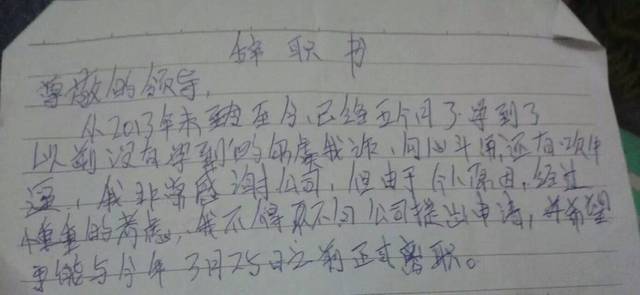 辞职书
尊敬的领导，
从2013年来到至今，已经五个月了学到了
以前没有学到的尔虞我诈，勾心斗角，还有次
，我非常感谢公司，但由于个人原因，经过
慎重的考虑，我不得不向公司提出申请，并希望
能与今年3月25日之前正式离职。